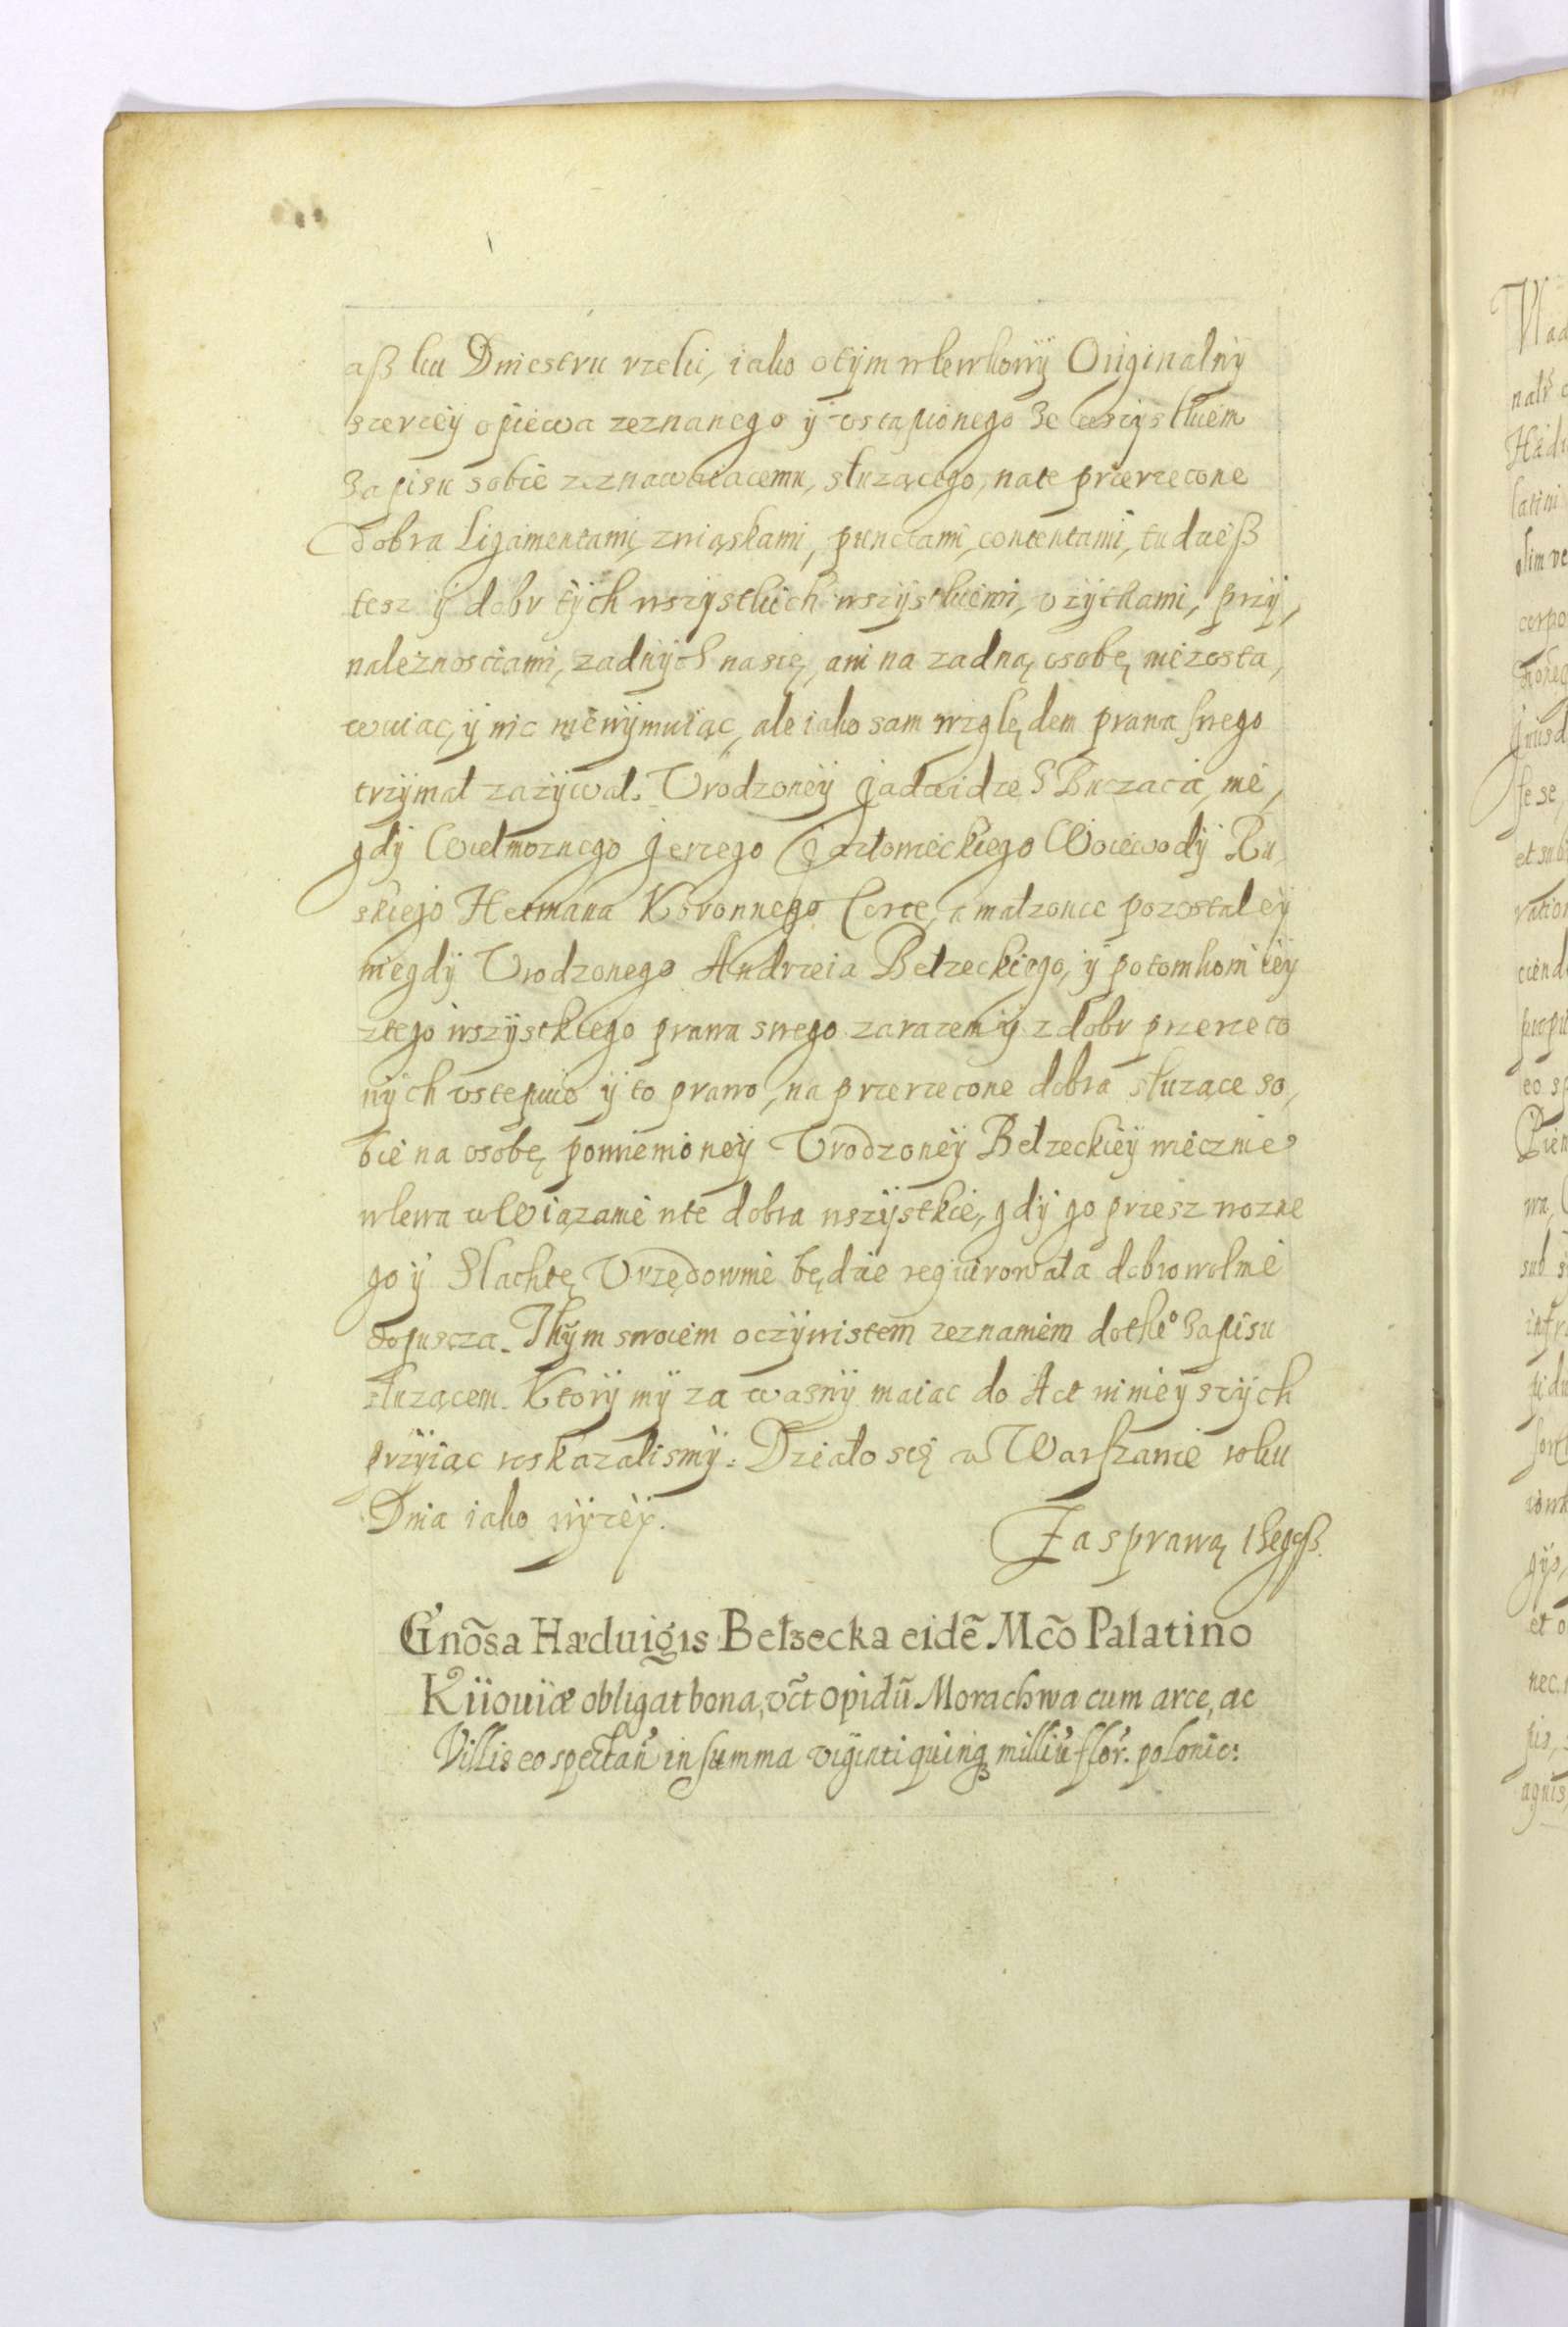 aß ku Dniestru rzeki, iako otÿm wlewkowÿ Originalnÿ
szerzeÿ opiewa zeznanego ÿ vstąpionego Ze wszÿstkiem
Zapisu sobie zeznawaiacemu, służącego, na te przerzeczone
dobra Ligamentami, zwiąskami, punctami, contentami, tudzieß
tesz ÿ dobr tÿch wszÿstkich wszÿstkiemi, vżÿtkami, przÿ,
należnosciami, zadnÿch na się, ani na zadną osobę niezosta,
wuiąc, ÿ nic niewÿmuiąc, ale iako sam względem prawa swego
trzÿmał zazÿwał. Vrodzoneÿ Jadwidze S Buczacża, nie,
gdÿ Wielmoznego Jerzego Jazłowieckiego Woiewodÿ Ru
skiego Hetmana Koronnego Corce, a małzonce pozostałeÿ
niegdÿ Vrodzonego Andrzeia Bełzeckiego, ÿ potomkom ieÿ
ztego wszÿstkiego prawa swego zarazem ÿ z dobr przerzeczo
nÿch vstępuie ÿ to prawo, na przerzeczone dobra słuzące so,
bie na osobę pomienioneÿ Vrodzoneÿ Bełzeckieÿ wiecznie
wlewa w Wiązanie wte dobra wszÿstkie, gdÿ go przesz wozne
go ÿ Slachtę Vrzędownie będzie requirowała dobrowolnie
dopuscza. Thÿm swoiem oczÿwistem zeznaniem dotheº Zapisu
służącem. Ktorÿ mÿ za wasnÿ maiąc do Act ninieÿszÿch
przÿiąc roskazalismÿ. Działo się w Warszawie roku
Dnia iako wÿzeÿ.
Za sprawą thegoß.
Gnõsa Hæduigis Bełzecka eidẽ Mcõ Palatino
Kiiouiæ obligat bona, vc̃t opidũ Morachwa cum arce, ac
Villis eo spectan̄ in summa viginti quinq milliũ flor̃. polonic: